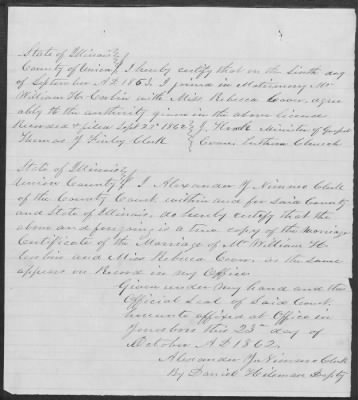 State of Illinois
County of Union I hereby certify that on the Sixth day
of September A.D. 1853. I joined in Matrimony Mr
William H. Corbin with Miss. Rebecca Coover, agre-
ably to the authority given in the above license
Recorded & filed Sept 25 J. Minister of Gospel
Thomas J Finley Clerk Evan. Lutheran Church
State of Illinois
Union County I Alexander J. Nimmo Clerk
of the County Court, within and for Said County
and State of Illinois, do hereby certify that the
above and foregoing is a true copy of the Marriage
Certificate of the Marriage of Mr William H.
Corbin and Miss Rebecca Coover as the same
appears on Record in my Office.
Given under my hand and the
Official Seal of Said Court,
hereunto affixed at Office in
Jonesboro this 23rd day of
October A.D 1862.
Alexander J. Nimmo Clerk
By Daniel Hileman Depty